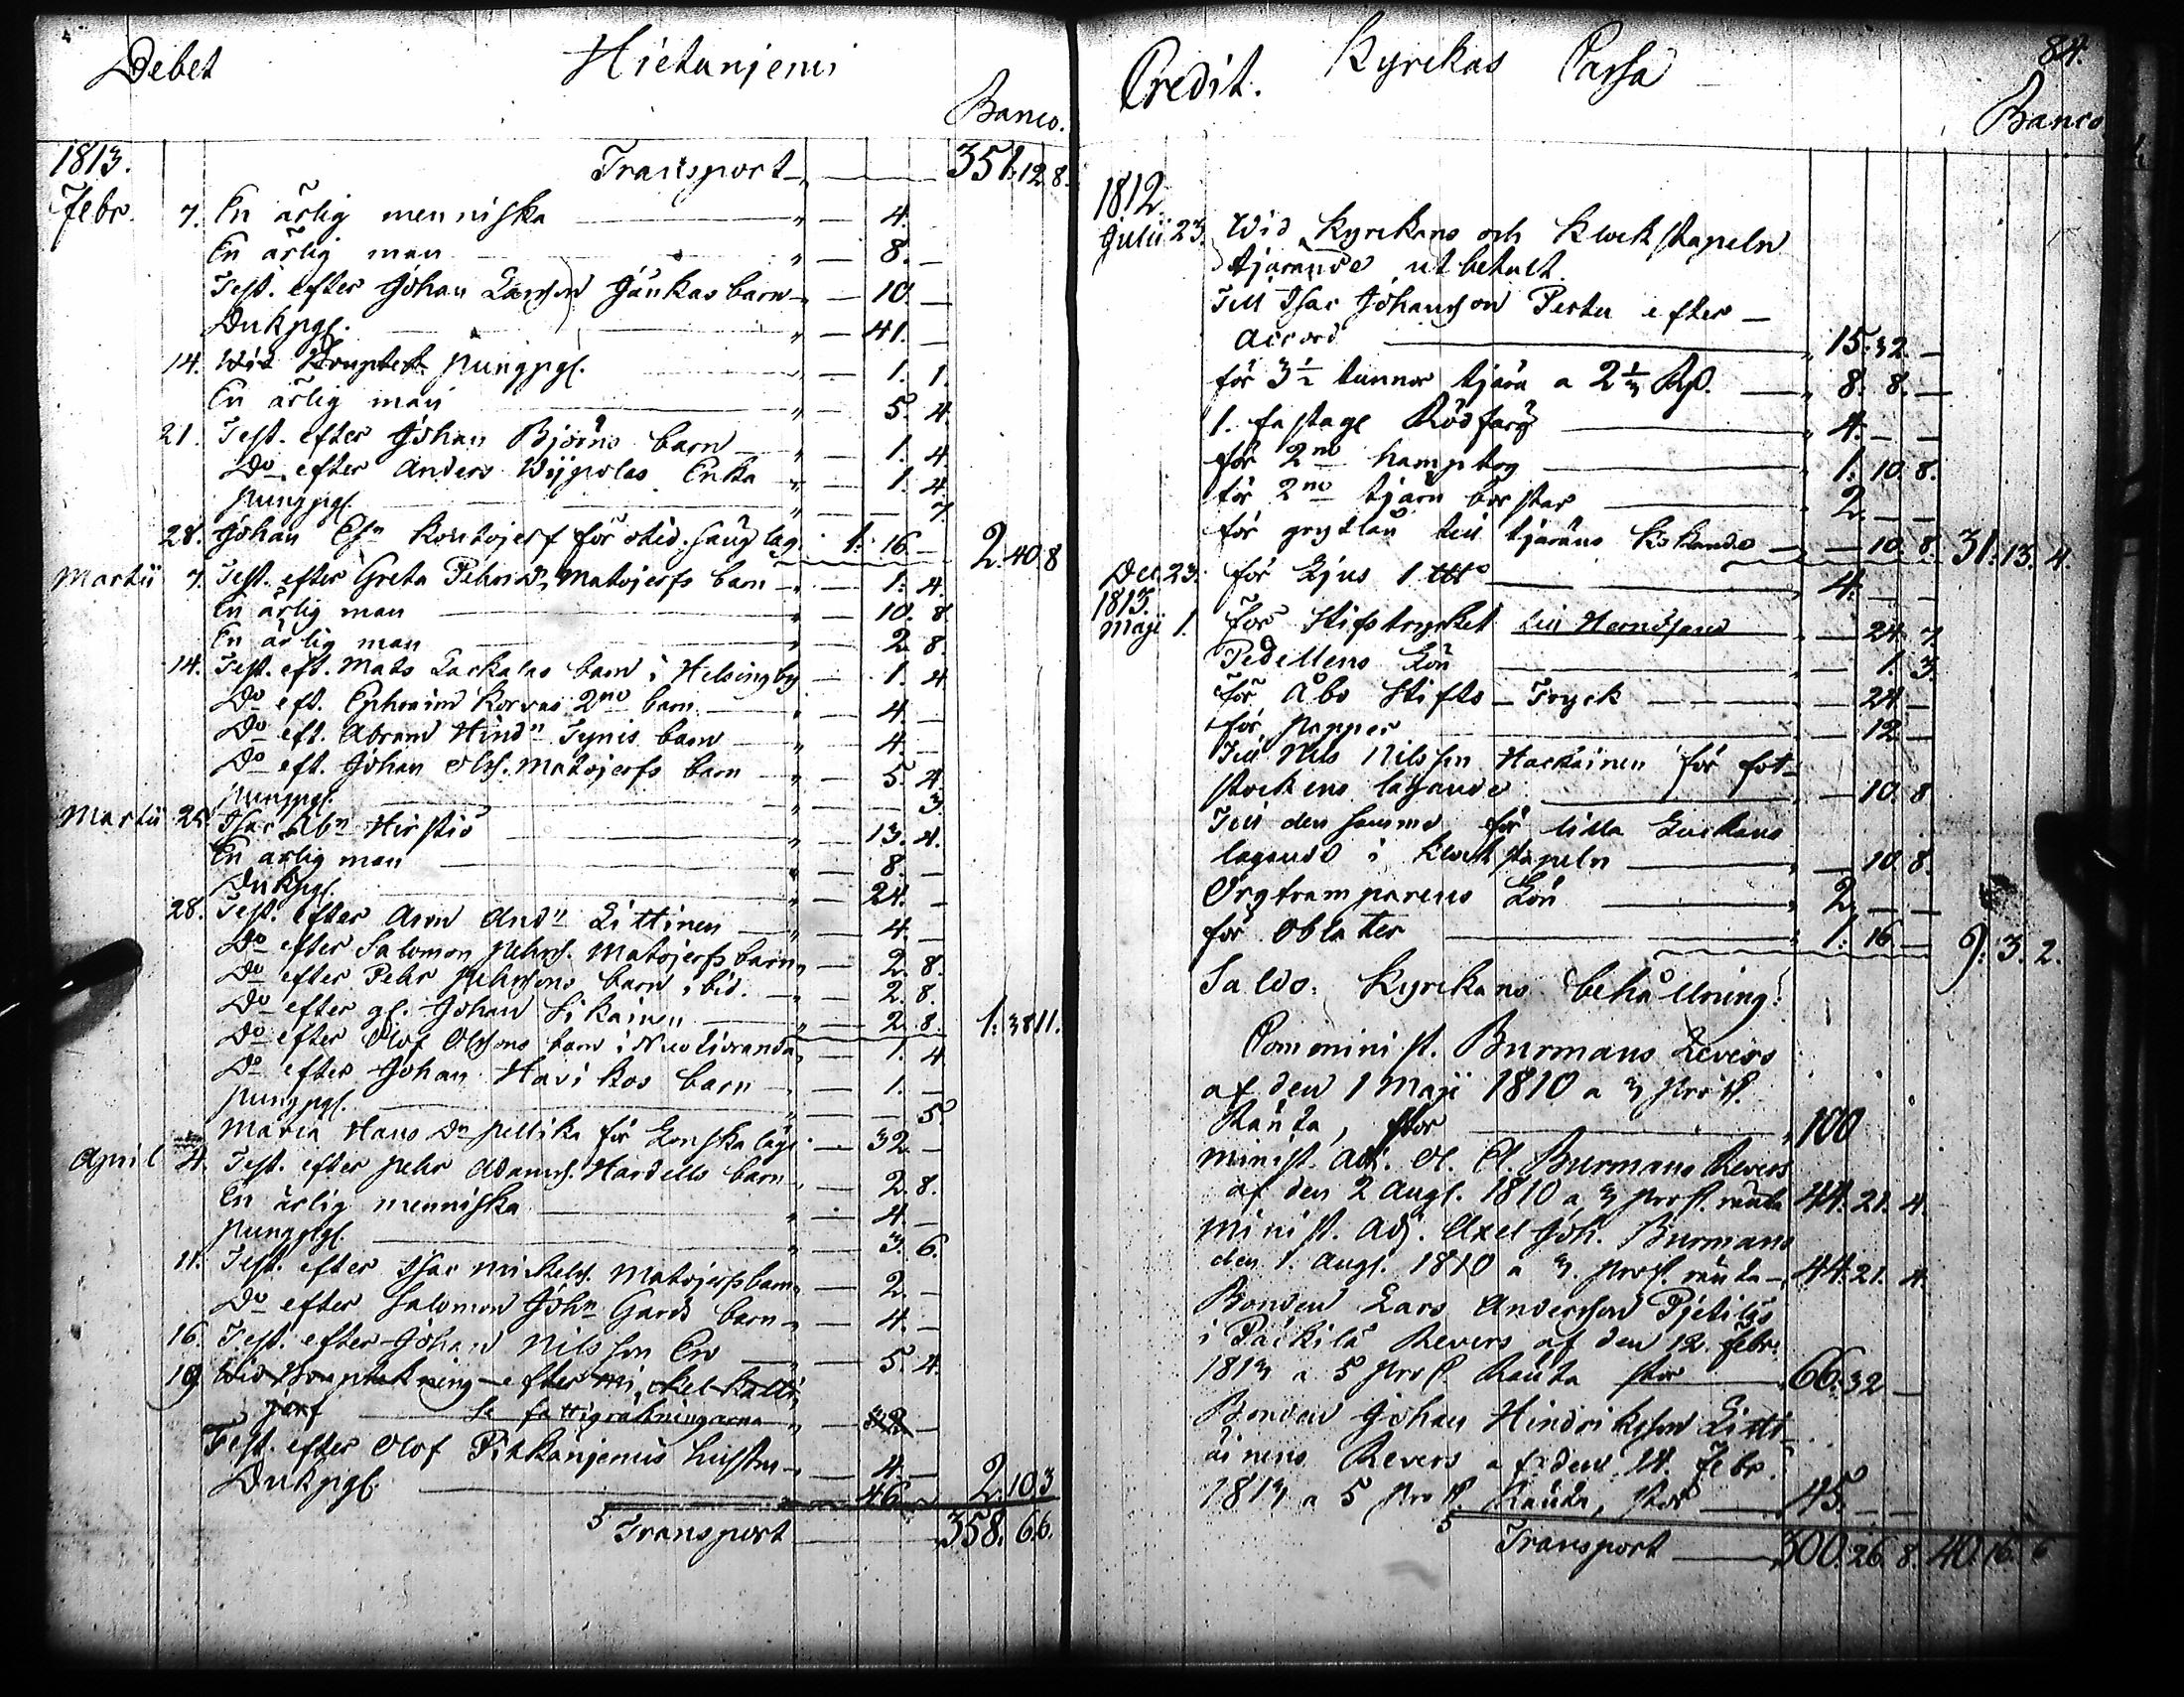 Debet Hietanjemi
Banco.
1813. Transport 351. 12. 8.
Febr. 7. En ärlig menniska " — 4.
En ärlig man " — 8. —
Test. efter Johan Larsson Jäukas barn " — 10. —
Dukpgl. " — 41. —
14. pungpgl. " — 1. 1.
En ärlig man " — 5. 4.
21. Test. efter Johan Björns barn " — 1. 4.
Do efter Anders Enka " — 1. 4.
pungpgl. " — — 7.
28. Johan för 1: 16 — 2. 40. 8
Martii 7. Test. efter Greta Matojerfs barn " — 1. 4.
En ärlig man " — 10. 8
En ärlig man " — 2. 8.
14. Test. eft. Mats Lackalas barn i Helsingby — 1. 4
Do eft. Ephraim Korvas 2no barn " — 4. —
Do eft. Abram Hindn Tynis barn " — 4. —
Do eft. Johan Olss. Matojerfs barn " — 5. 4.
pungpgl. " — — 3.
Martii 25. Isac Abn Hirstiö " — 13. 4.
En ärlig man " — 8. —
Dukpgl. " — 24. —
28. Test. efter Aron Andn Littinen " — 4. —
Do efter Salomon Pehrs. Matojerfs barn " — 2. 8.
Do efter Pehr Pehrssons barn ibid. " — 2. 8.
Do efter gl. Johan Sikainen " — 2. 8. 1. 38 11.
Do efter Olof Olssons barn i Niemislivaranda — 1. 4
Do efter Johan Havikos barn — 1. —
pungpgl. " — — 5.
Maria Hans Dn pellika för — 32 —
April 4. Test. efter pehr Adams. Hardells barn " — 2. 8.
En ärlig menniska " — 4. —
pungpgl. " — 3. 6.
11. Test. efter Isac Mickels. Matojerfs barn " — 2. —
Do efter Salomon John Gards barn " — 4. —
16. Test. efter Johan Nilsson Ero " — 5. 4.
19. Wid efter Mickel Kalli
järf se fattigräkningarna " — 32 —
Test. efter Olof Pirkanjemis hustru " — 4. —
Dukpgl. — 46 — 2. 10. 3
5 Transport 358. 6. 6.
Credit. Kyrckas Cassa 84.
Banco
1812
Julii 23. Wid Kyrckans och Klockstapeln
tjärande utbetalt.
Till Isac Johansson Pertu efter —
accord " 15. 32. —
för 3 1/2 tunnor tjära a 2 1/3 Rd. " 8. 8. —
1. fastage Rödfärg " 4. — —
för 2no hamptog " 1. 10. 8.
för 2no tjäru borstar 2. — —
för grytlån till tjärans kokande " — 10. 8. 31. 13. 4.
Dec. 23. för Ljus 1 " 4. — —
1813.
Maji 1. för Stifstrycket till Hernösand " — 24. 7.
Pedellens Lön " — 1. 3.
för Åbo Stifts-Tryck — 24 —
för papper — 12 —
Till Nils Nilsson Hackainen för fot-
stockens lagande " — 10. 8
Till den samme för lilla Luckans
lagande i Klockstapeln " — 10. 8.
Orgtramparens Lön " 2. — —
för Oblater " 1. 16 — 9. 3. 2.
Saldo. Kyrckans behållning.
Comminist. Burmans Revers
af den 1 Maji 1810 a 3 pro St.
Ränta, stor " 100
Minist. Adj. O. A. Burmans Revers
af den 2 Aug. 1810 a 3 pro St. ränta 44. 21. 4.
Minist. Adj. Axel Joh. Burmans
den 1. Aug. 1810 a 3. pro St. ränta — 44. 21. 4.
Bonden Lars Andersson Pjetiläs
i Päckilä Revers af den 12. febr.
1813 a 5 pro St. Ränta stor " 66. 32 —
Bonden Johan Hindriksson Litti-
äinens Revers af den 14. Febr.
1813 a 5 pro St. Ränta, stor 45. — —
5 Transport 300. 26. 8. 40. 16. 6